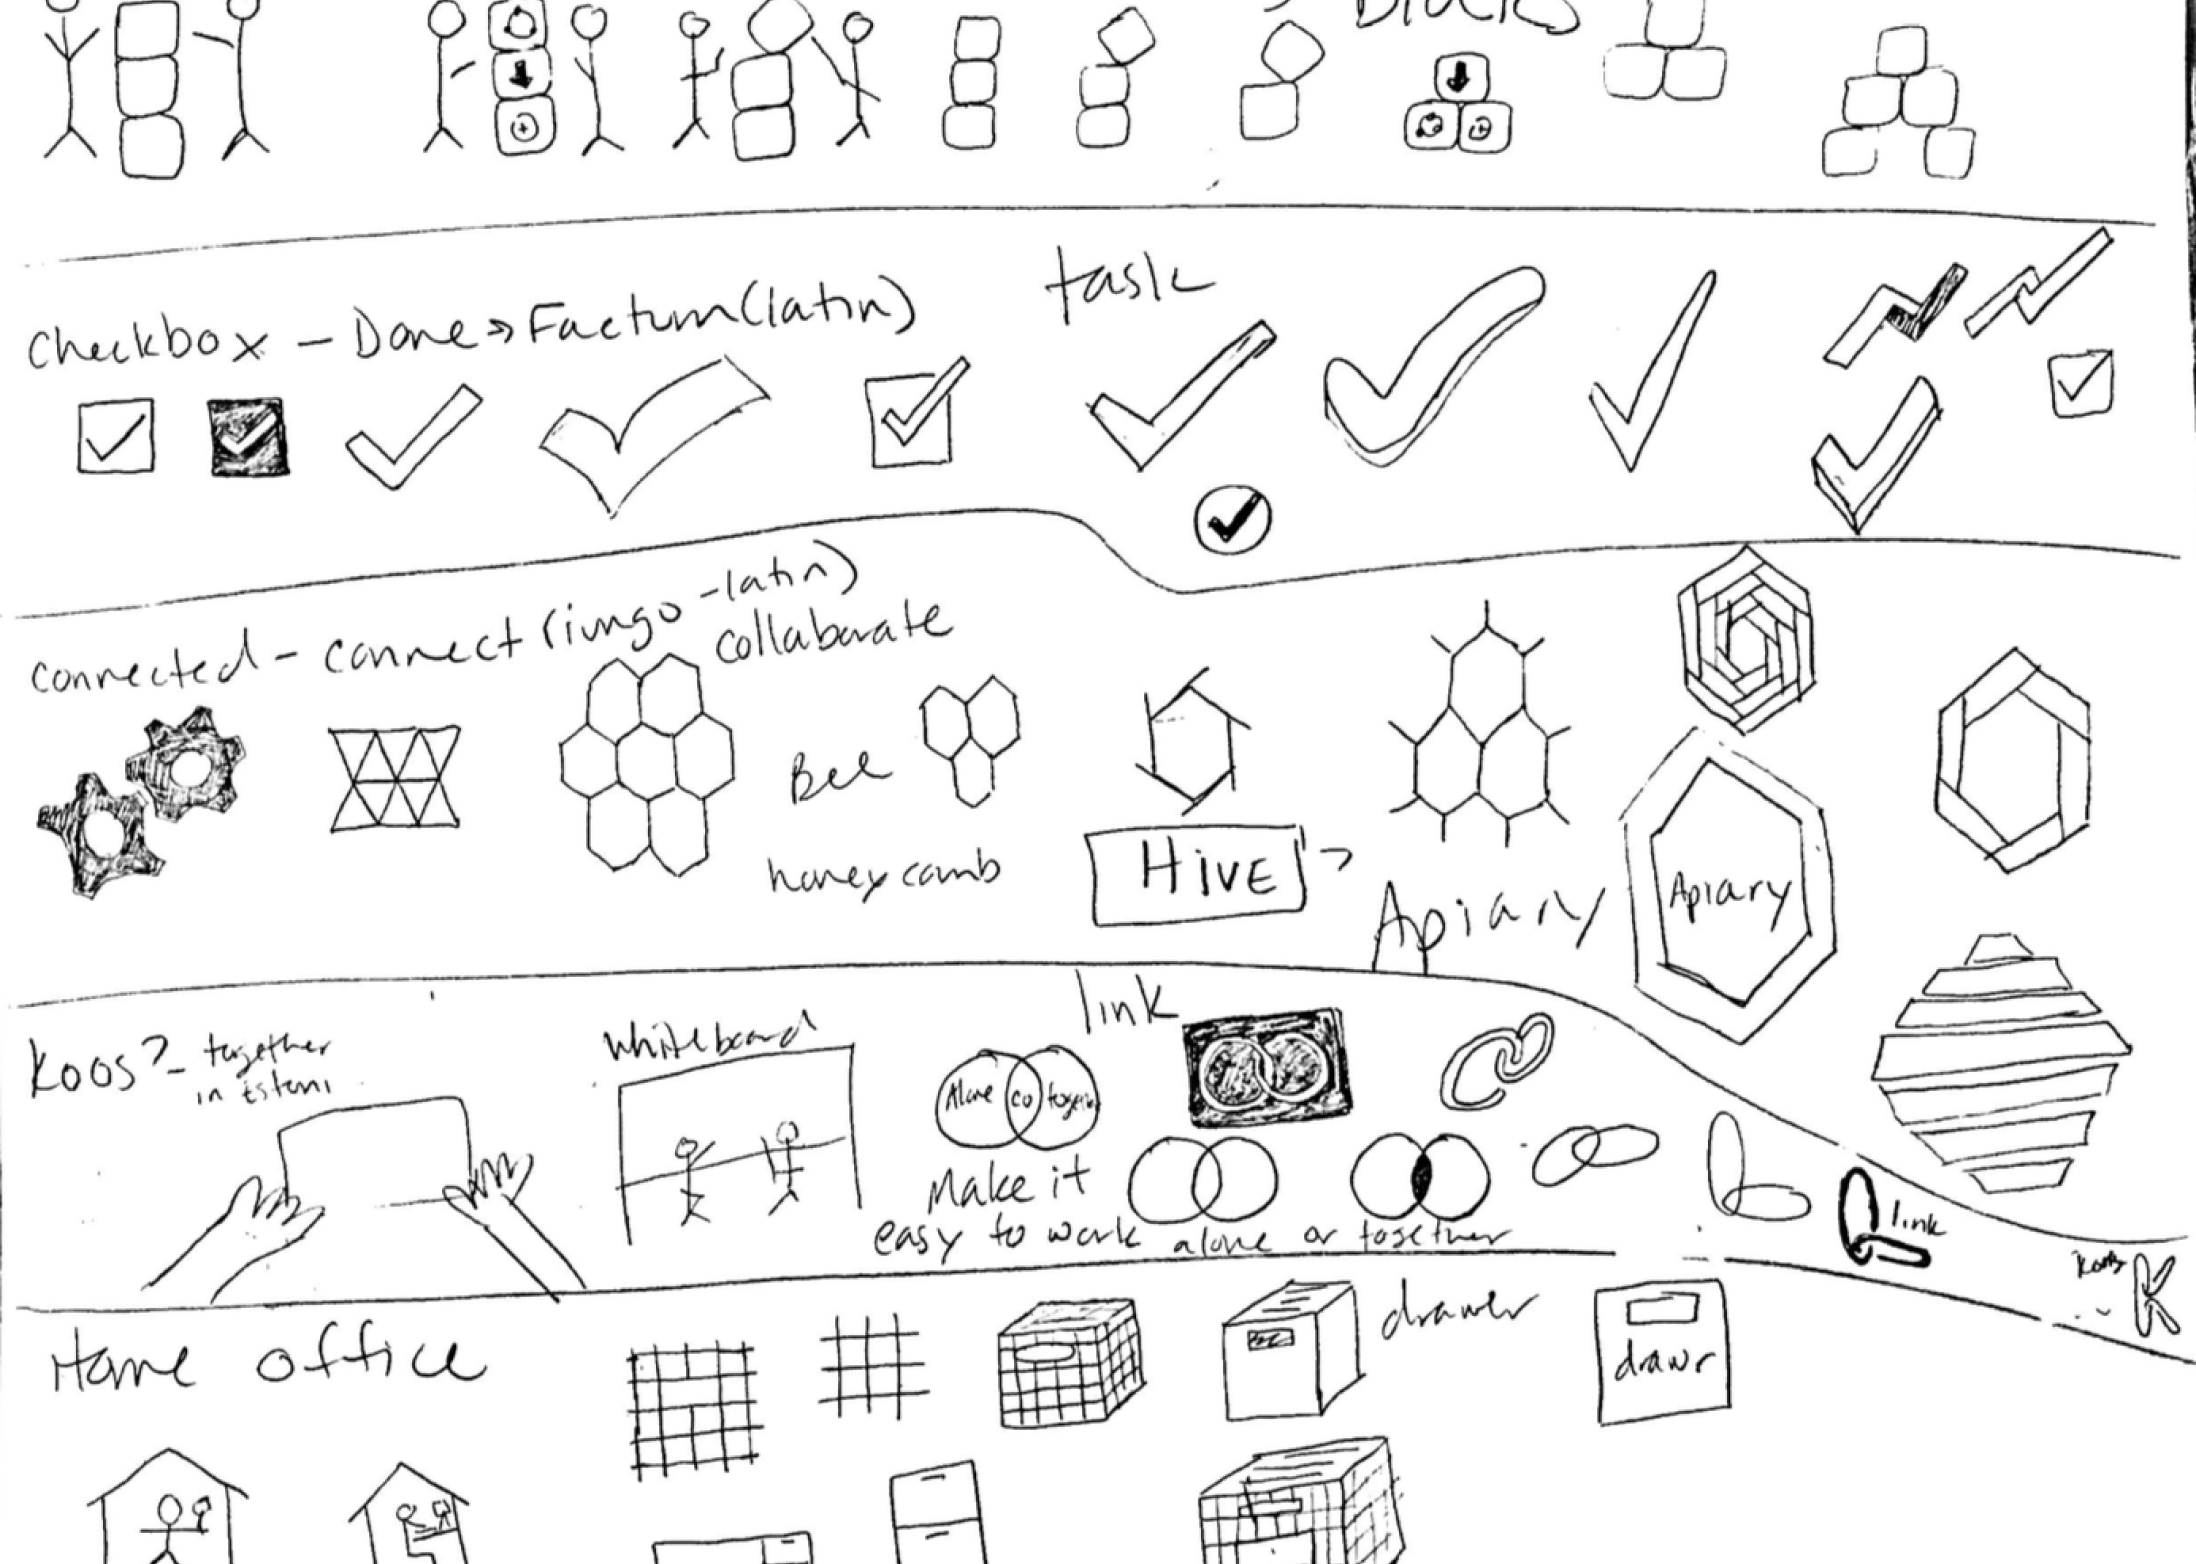 Blocks
task
Checkbox - Done => Factum (latin)
connected - connect (iungo - latin)
collaborate
Bee
honeycomb
HIVE
Apiary
Apiary
link
Koos? - together
in Estoni
whiteboard
Alone co together
Make it
easy to work alone or together
link
Koos
K
Home office
drawer
drawr